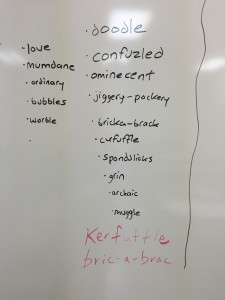 · love
· mumdane
· ordinary
· bubbles
· worble
·
· doodle
· confuzled
· ominecent
· jiggery-pockery
· bricka-brack
· curfuffle
· spondulicks
· grin
· archaic
· muggle
Kerfuffle
bric-a-brac